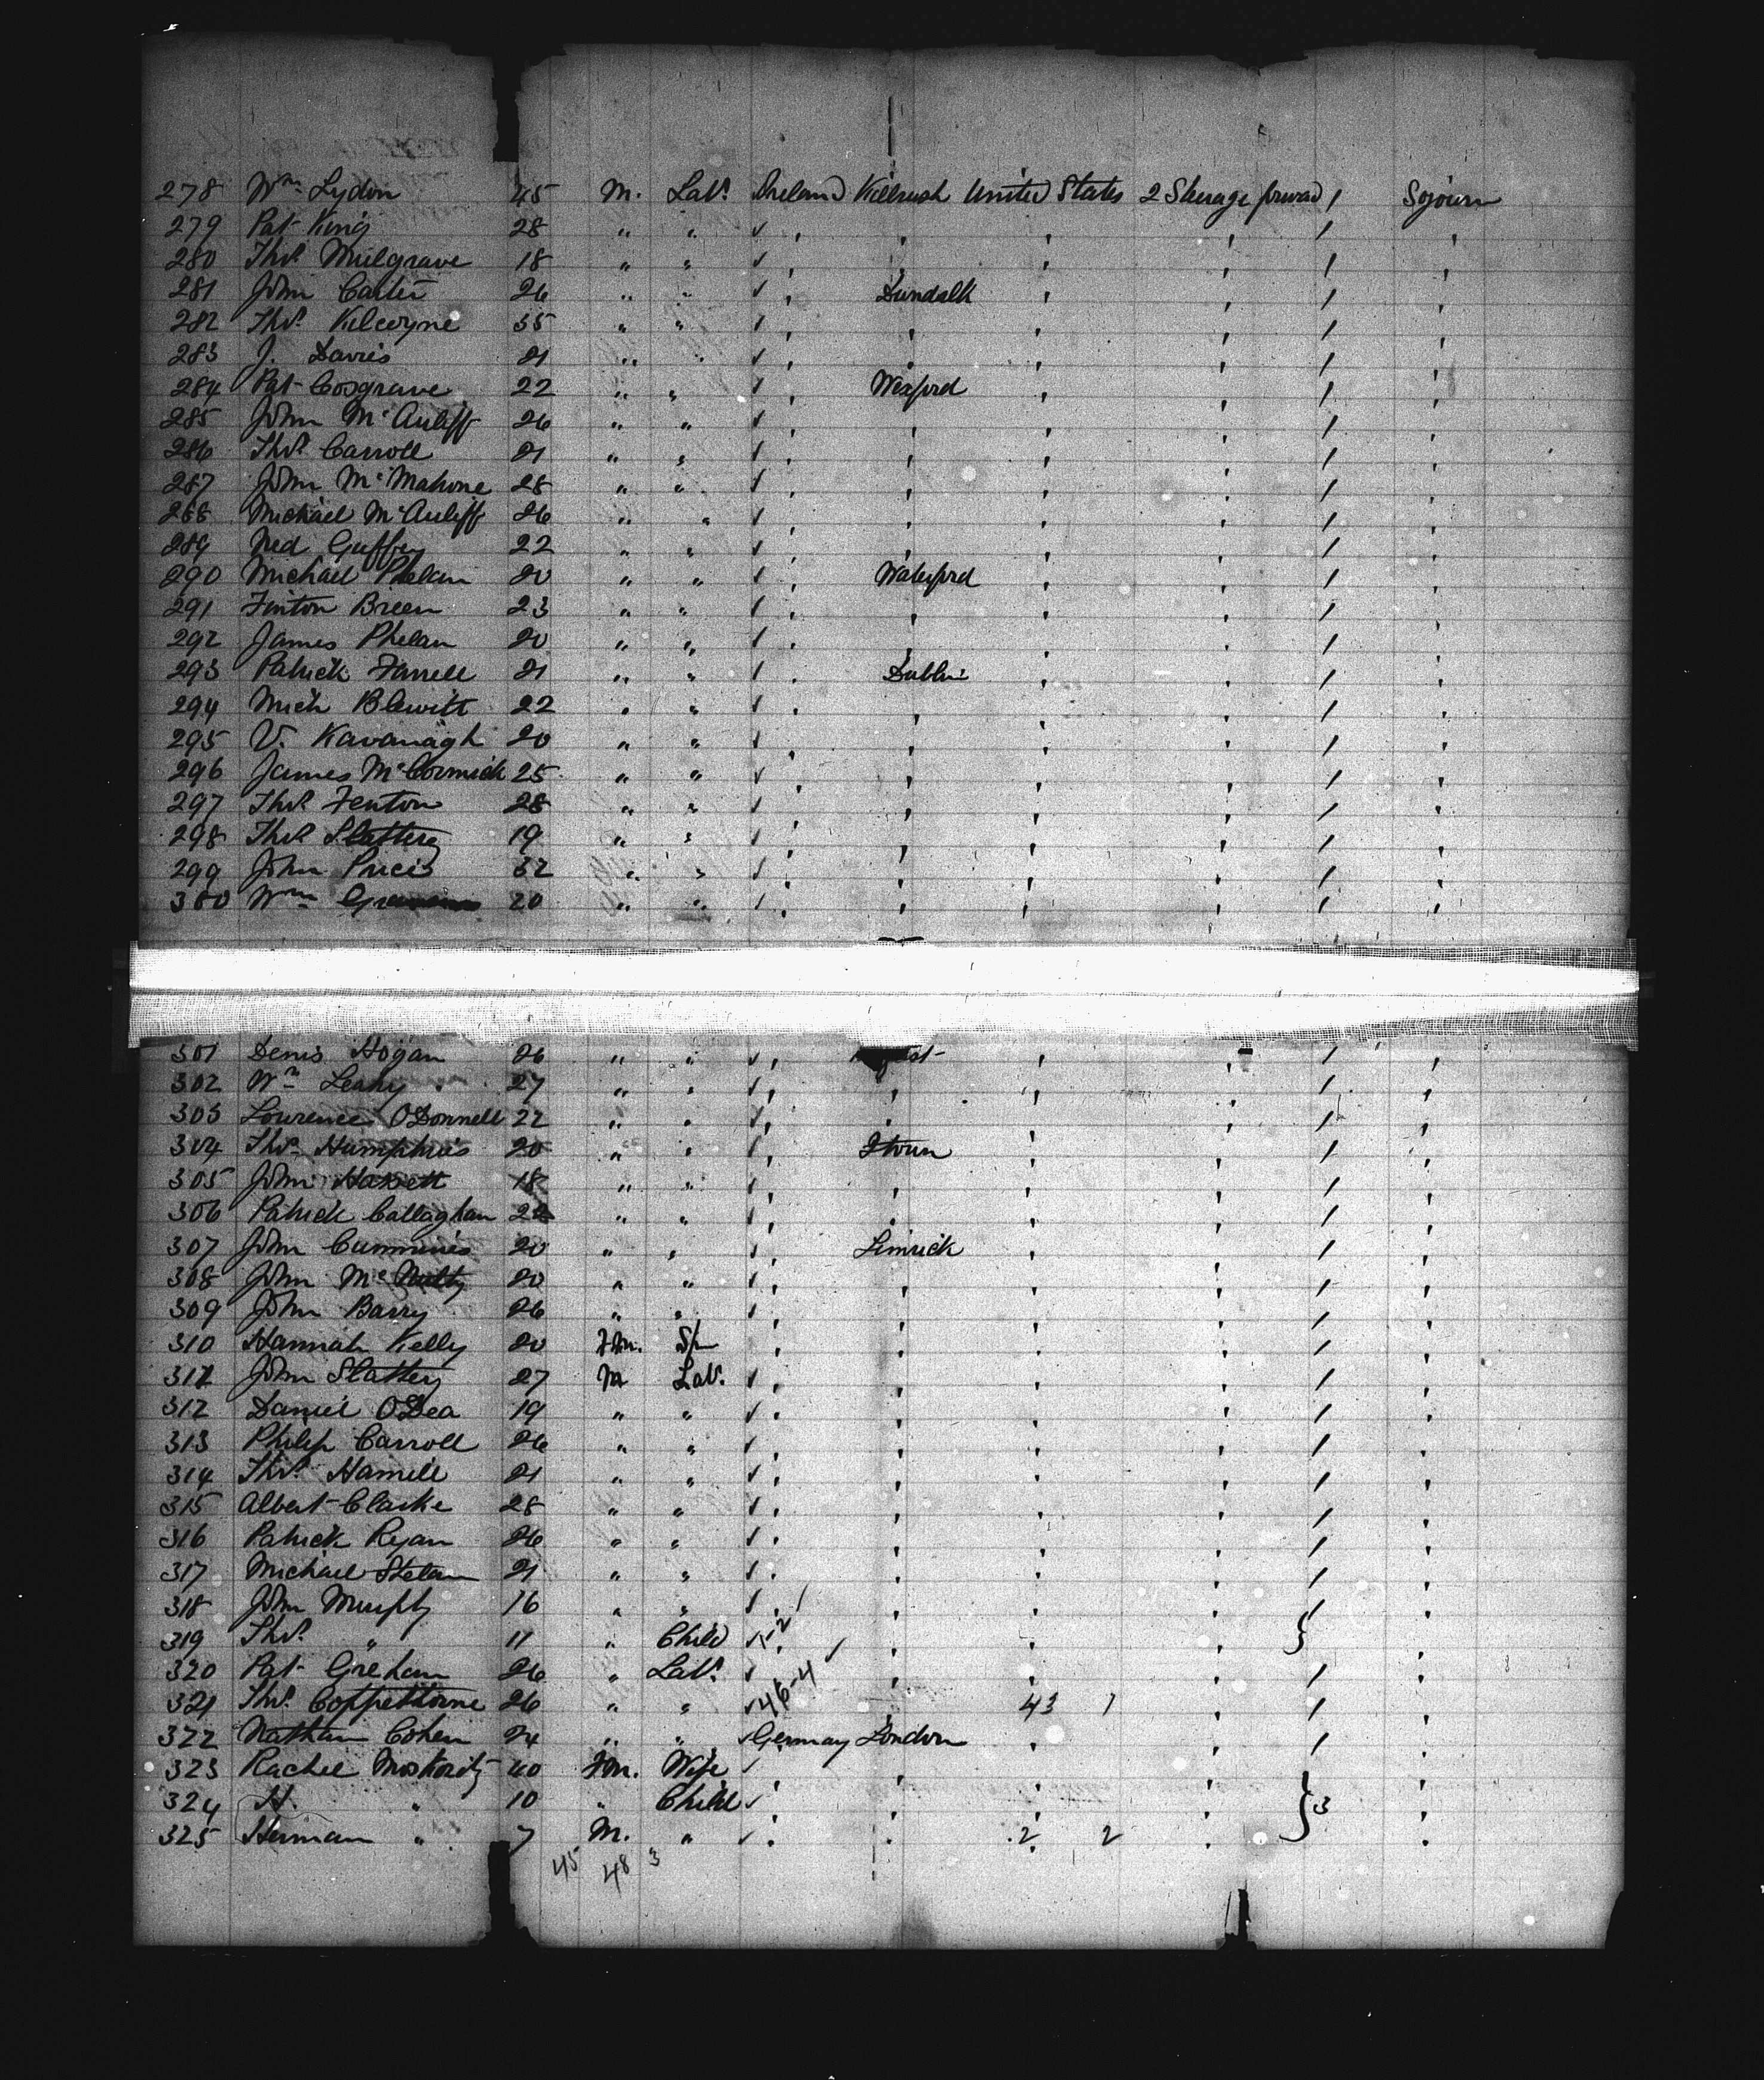 278 Wm Lydon 45 M. Labr. Ireland Killrush United States 2 Steerage forward / Sojourn
279 Pat King 28 " " ✓ , , , , / ,
280 Thos. Mulgrave 18 " " ✓ , , , , / ,
281 John Carter 26 " " ✓ , Dundalk , , / ,
282 Thos. Kilcoyne 35 " " ✓ , , , , / ,
283 J. Davis 21 " " ✓ , , , , / ,
284 Pat Cosgrave 22 " " ✓ , Wexford , , / ,
285 John McAuliff 26 " " ✓ , , , , / ,
286 Thos. Carroll 21 " " ✓ , , , , / ,
287 John McMahone 28 " " ✓ , , , , / ,
288 Michael McAuliff 26 " " ✓ , , , , / ,
289 Ned Guffey 22 " " ✓ , , , , / ,
290 Michael Phelan 20 " " ✓ , Waterford , , / ,
291 Finton Breen 23 " " ✓ , , , , / ,
292 James Phelan 20 " " ✓ , , , , / ,
293 Patrick Farrell 21 " " ✓ , Dublin , , / ,
294 Mich Blewitt 22 " " ✓ , , , , / ,
295 V. Kavanagh 20 " " ✓ , , , , / ,
296 James McCormick 25 " " ✓ , , , , / ,
297 Thos. Fenton 28 " " ✓ , , , , / ,
298 Thos. Slattery 19 " " ✓ , , , , / ,
299 John Price 32 " " ✓ , , , , / ,
300 Wm 20 " " ✓ , , , , / ,
301 Denis Hogan 26 " " ✓ , , , / ,
302 Wm Leahy 27 " " ✓ , , , , / ,
303 Lowrence ODonnell 22 " " ✓ , , , , / ,
304 Thos. Humphries 20 " " ✓ , , , / ,
305 John 18 " " ✓ , , , , / ,
306 Patrick Callaghan 22 " " ✓ , , , , / ,
307 John Cummins 20 " " ✓ , Limrick , , / ,
308 John McNulty 20 " " ✓ , , , , / ,
309 John Barry 26 " " ✓ , , , , / ,
310 Hannah Kelly 20 Fm. Sp , , , , / ,
311 John Slattery 27 M Labr. ✓ , , , , / ,
312 Daniel ODea 19 " " ✓ , , , , / ,
313 Philip Carroll 26 " " ✓ , , , , / ,
314 Thos. Hamill 21 " " ✓ , , , , / ,
315 Albert Clarke 28 " " ✓ , , , , / ,
316 Patrick Ryan 26 " " ✓ , , , , / ,
317 Michael 21 " " ✓ , , , , / ,
318 John Murphy 16 " " ✓ , , , , / ,
319 Thos. " 11 " Child ✓ 1-2 , , , } ,
320 Pat Greham 26 " Labr. ✓ , , , / ,
321 Thos. Coppethorne 26 " " ✓ 46-4 , 43 1 , / ,
322 Nathan Cohen 24 " " ✓ Germay London , , / ,
323 Rachel Moskovitz 40 Fm. Wife ✓ , , , , ,
324 H. " 10 " Child ✓ , , , , } 3 ,
325 Herman " 7 M. " ✓ , , 2 2 , ,
45 48 3